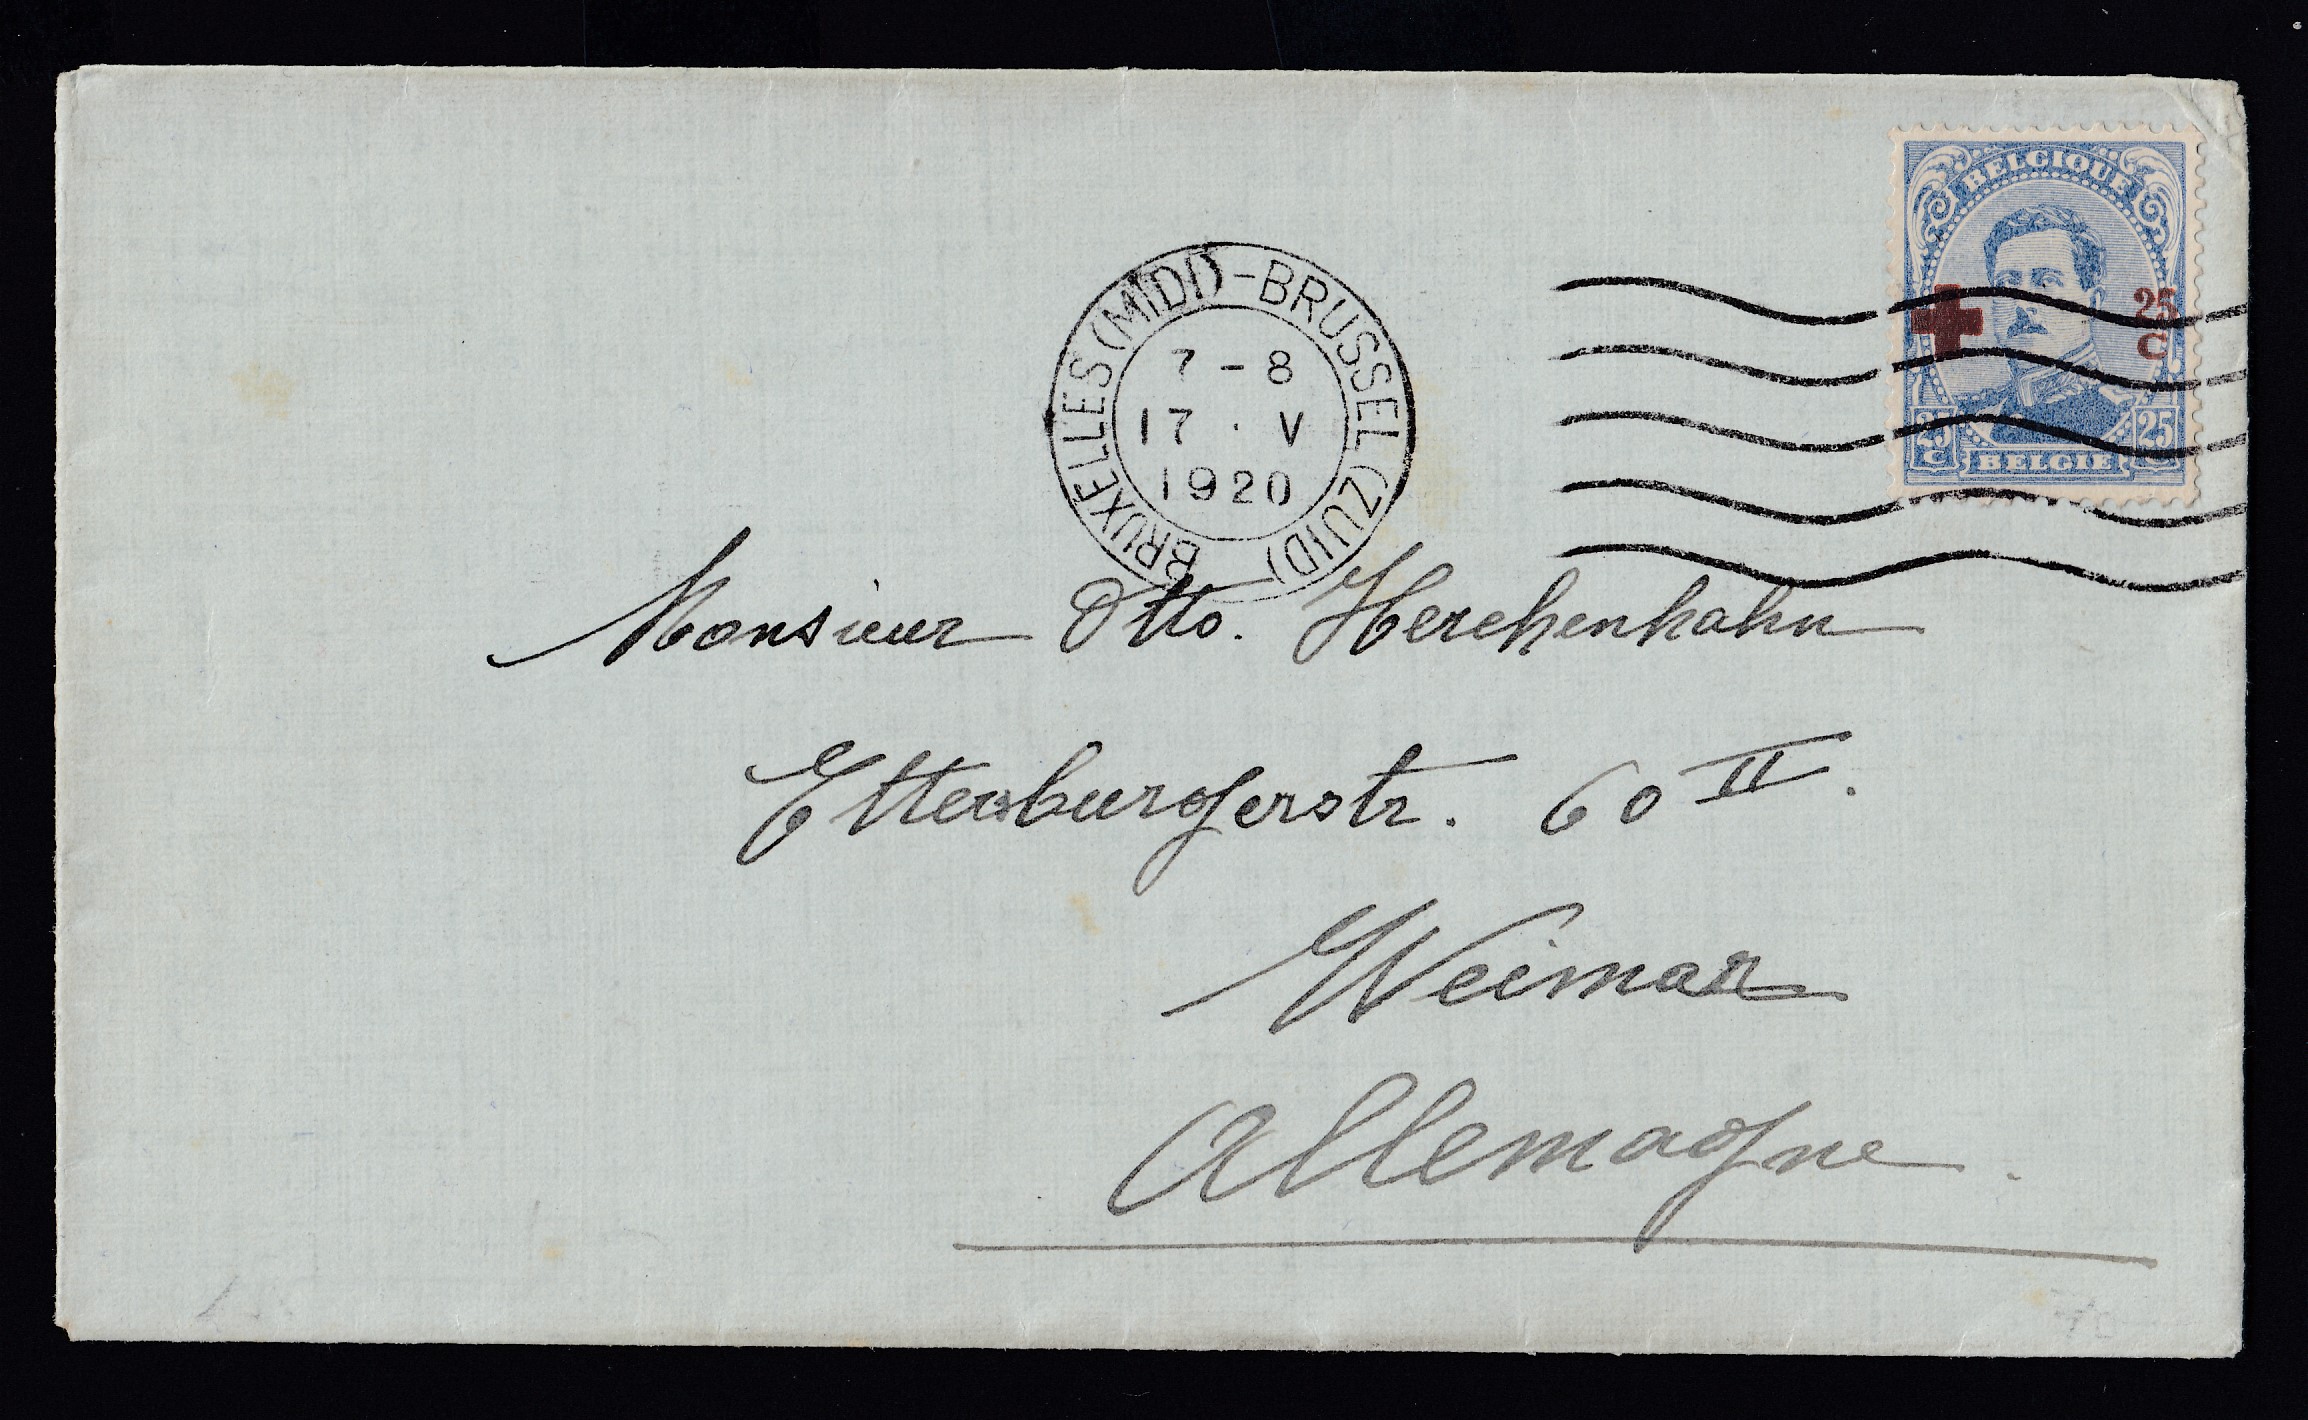 BELGIQUE
25
C
25
C
25
C
BELGIE
BRUXELLES (MIDI) - BRUSSEL (ZUID)
7 - 8
17 . V
1920
Monsieur Otto. Herchenhahn
Ettersburgerstr. 60 II.
Weimar
Allemagne.